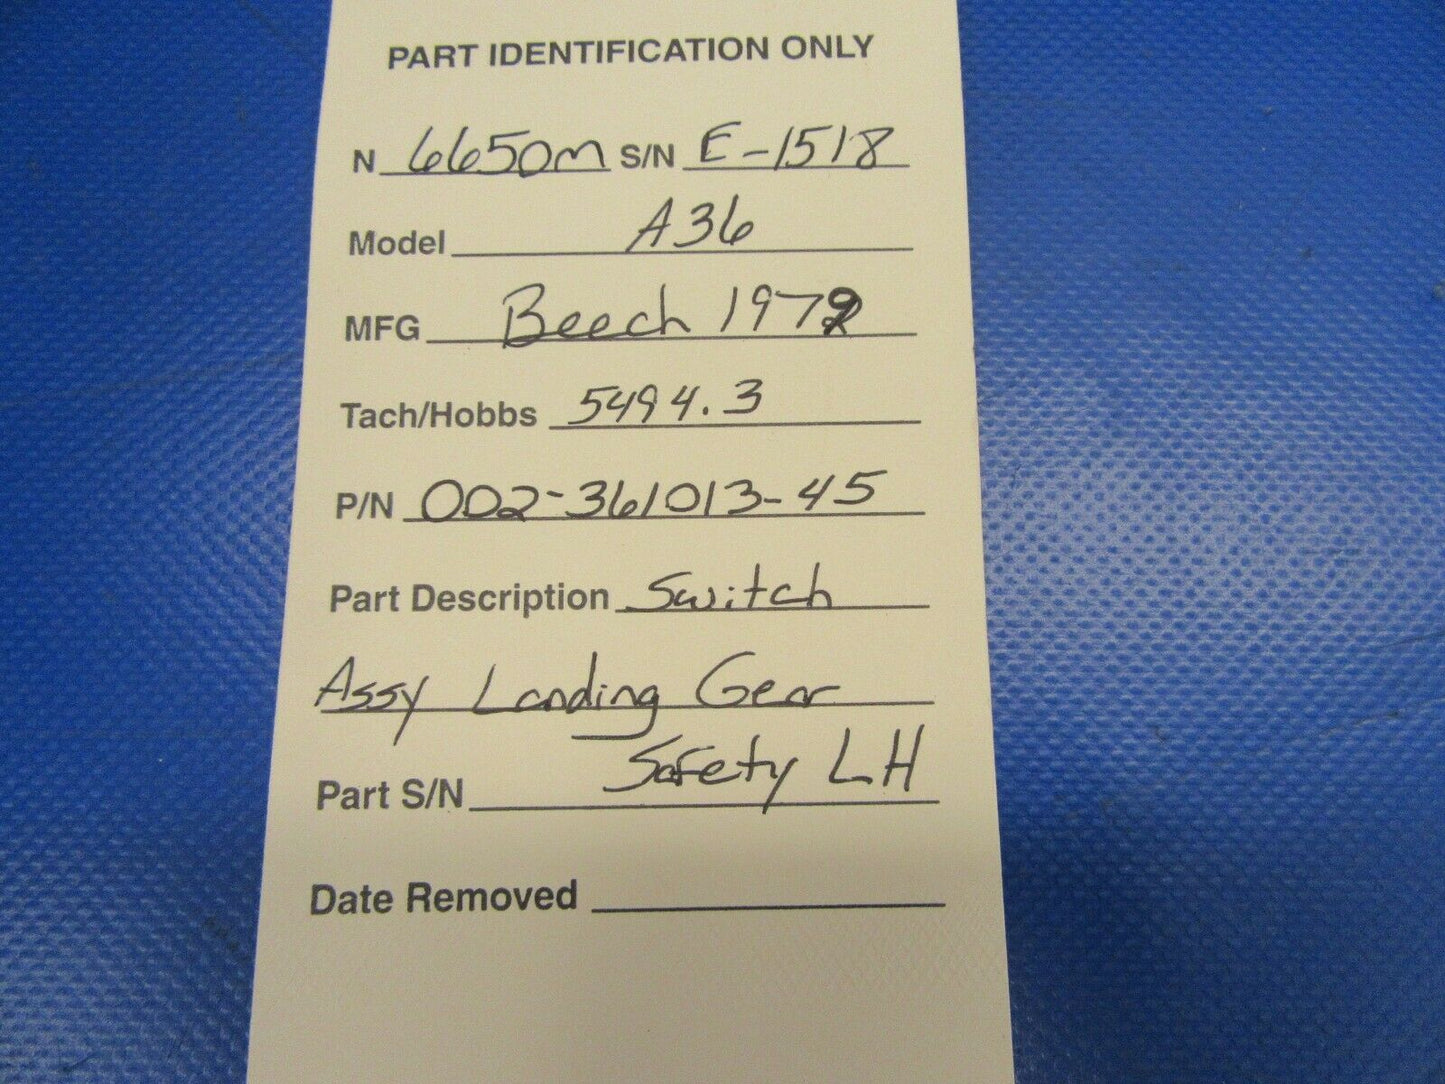 PART IDENTIFICATION ONLY
N 6650m S/N E-1518
Model A36
MFG Beech 1979
Tach/Hobbs 5494.3
P/N 002-361013-45
Part Description Switch
Assy Landing Gear
Safety LH
Part S/N
Date Removed